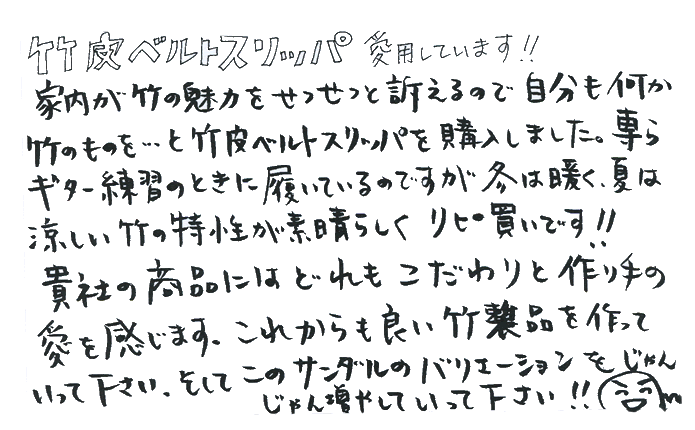 竹皮ベルトスリッパ 愛用しています!!
家内が竹の魅力をせつせつと訴えるので自分も何か
竹のものを…と竹皮ベルトスリッパを購入しました。専ら
ギター練習のときに履いているのですが冬は暖く、夏は
涼しい竹の特性が素晴らしくリピ買いです!!
貴社の商品にはどれもこだわりと作り手の
愛を感じます。これからも良い竹製品を作って
いって下さい。そしてこのサンダルのバリエーションをじゃん
じゃん増やしていって下さい!!